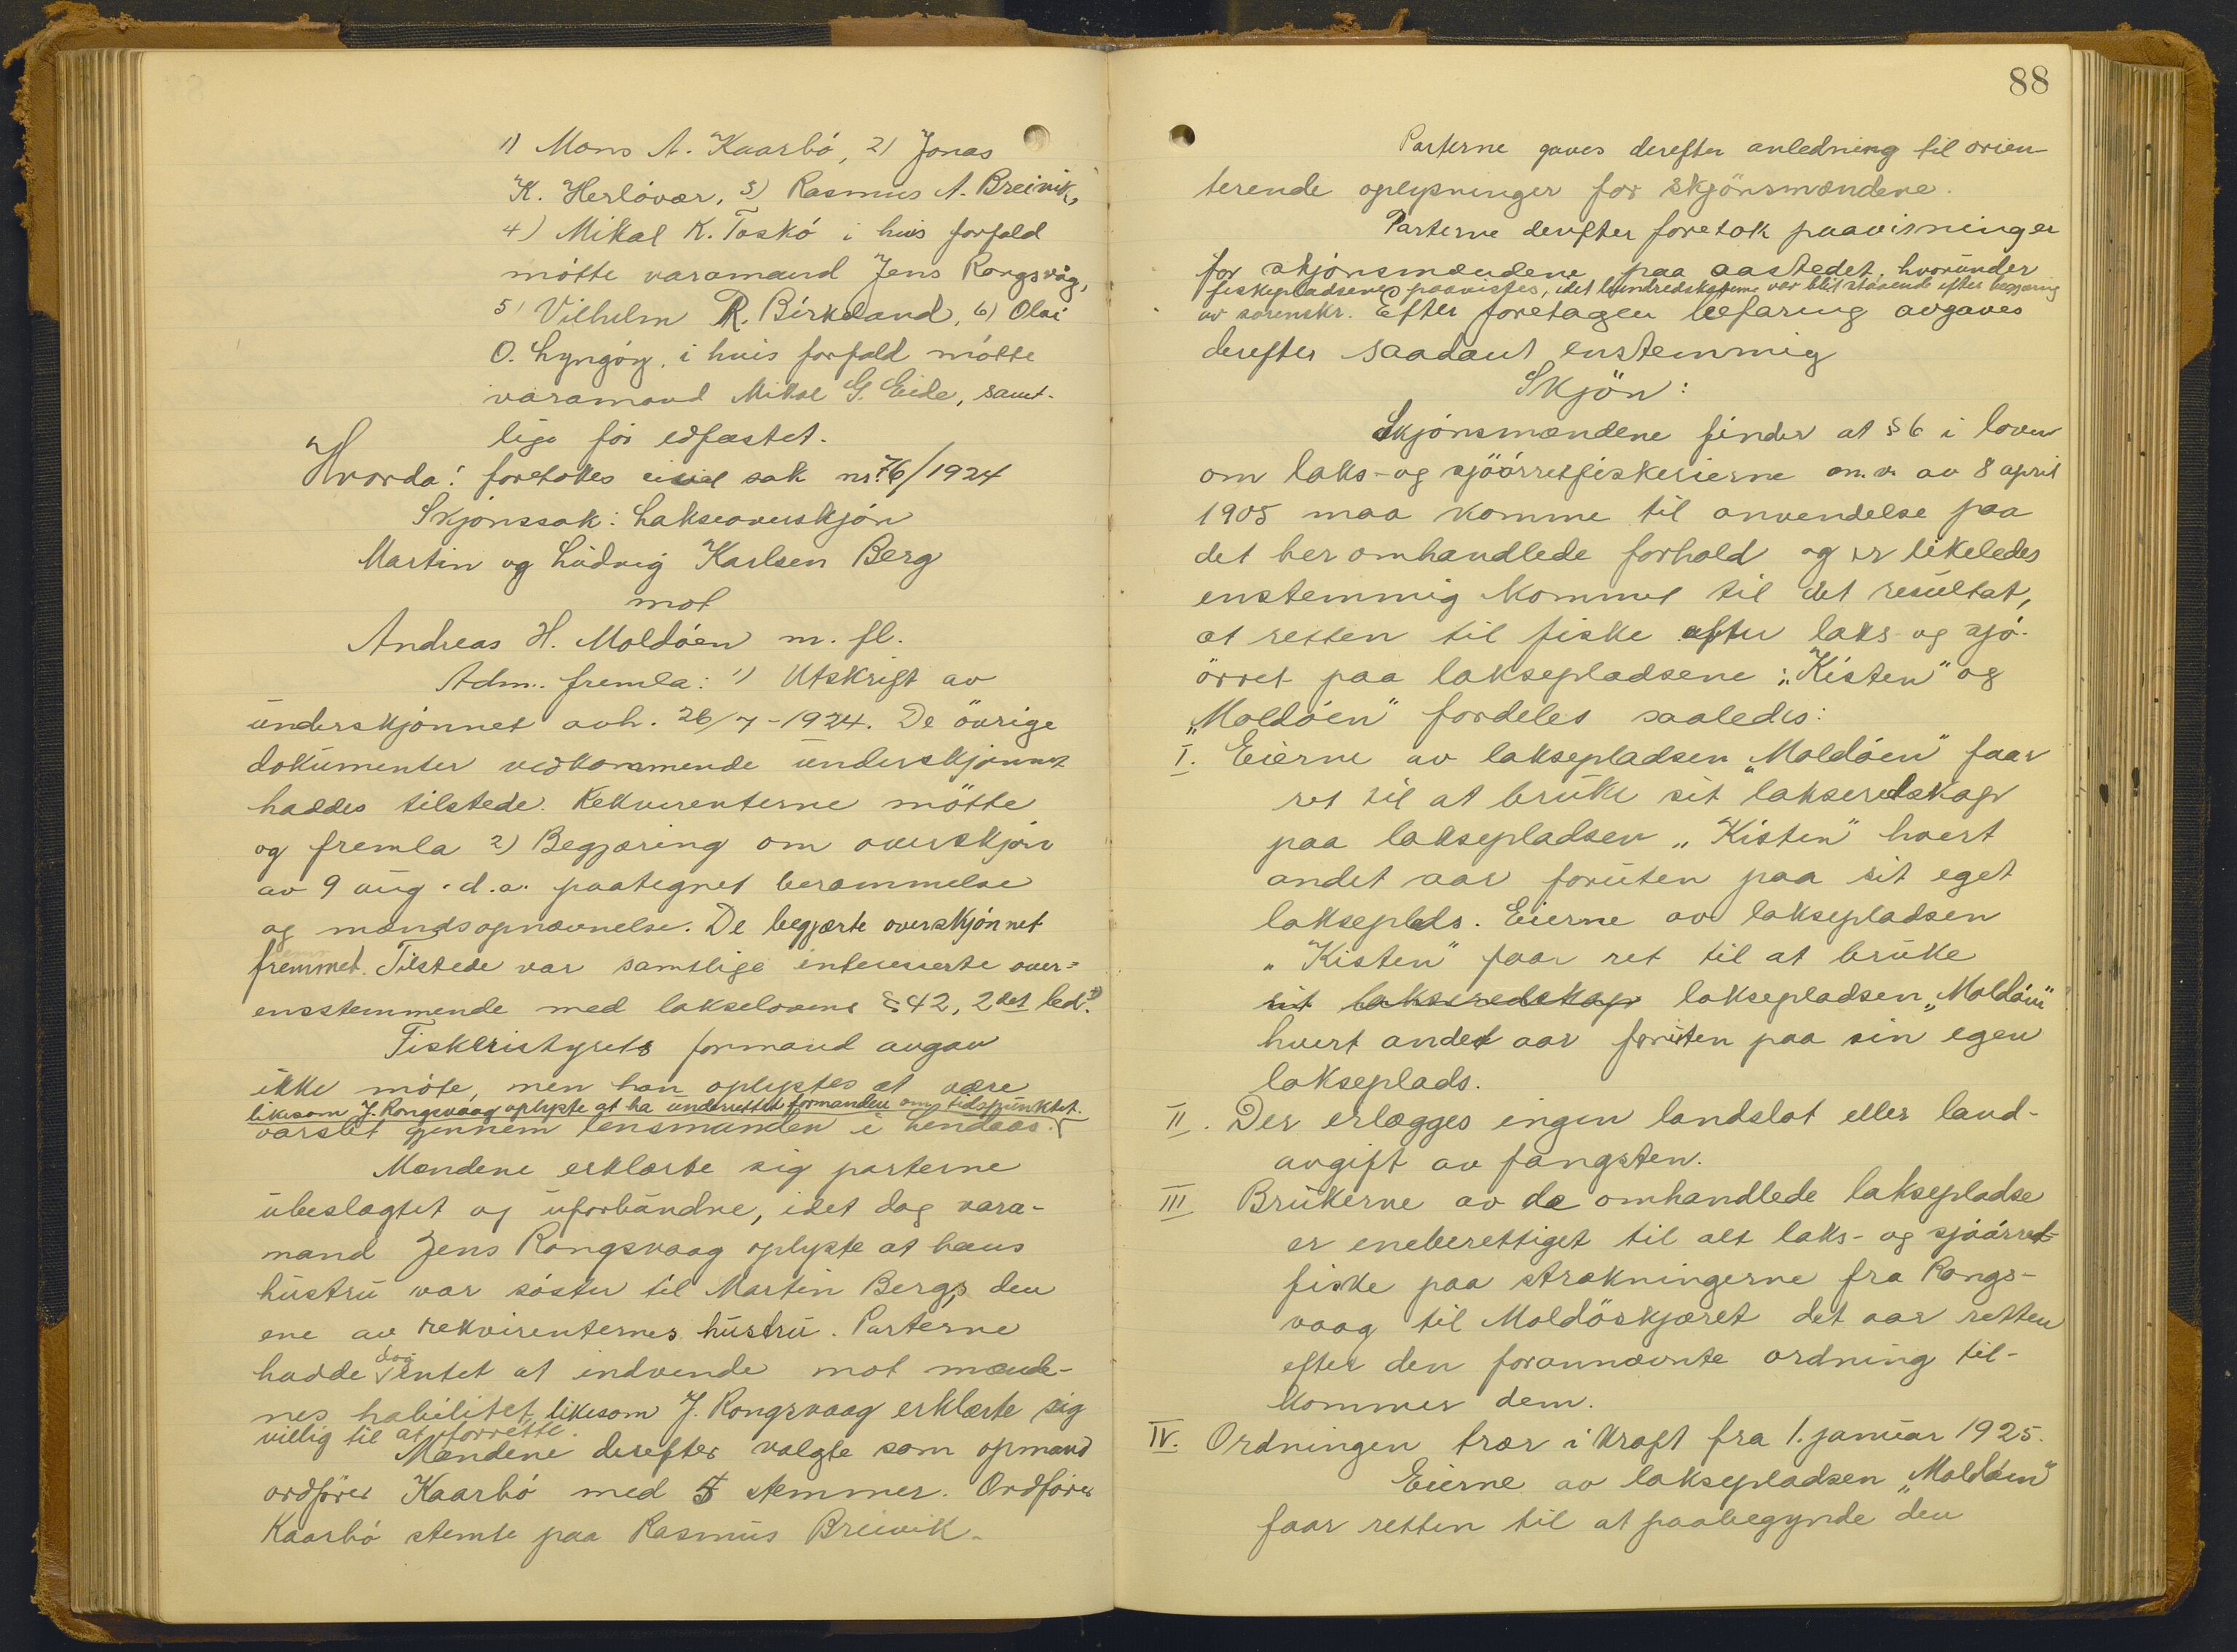 1) Mons A. Kaarbó, 2) Jonas
K. Herlóvær, 3) Rasmus A. Breivik,
4) Mikal K. Toskó i hvis forfald
mótte varamand Jens Rongsvåg,
5) Vilhelm R. Birkeland, 6) Olai
O. Lyngóy, i hvis forfald mótte
varamand Mikal G. Eide, samt-
lige fór edfæstet.
Hvorda: foretokes civil sak nr. 76/1924
Skjónssak: Lakseoverskjón
Martin og Ludvig Karlsen Berg
mot
Andreas H. Moldóen m. fl.
Adm. fremla: 1) Utskrift av
underskjónnet avh. 26/7-1924. De övrige
dokumenter vedkommende underskjónnet
haddes tilstede. Rekvirenterne mötte
og fremla 2) Begjæring om overskjón
av 9 aug. d.a. paategnet berammelse
og mandsopnævnelse. De begjærte overskjónnet
fremmet. Tilstede var samtlige interesserte over=
ensstemmende med lakselovens § 42, 2det led.
Fiskeristyrets formand avgav
ikke móte, men han oplystes at være
likesom J. Rongsvaag oplyste at ha underrettet formanden om tidspunktet.
varslet gjennem lensmanden i Lindaas.
Mændene erklærte sig parterne
ubeslagtet og uforbundne, idet dog vara-
mand Jens Rongsvaag oplyste at hans
hustru var sóster til Martin Bergs, den
ene av rekvirenternes hustru. Parterne
hadde dog intet at indvende mot mænde-
nes habilitet, likesom J. Rongsvaag erklærte sig
villig til at forrette.
Mændene derefter valgte som opmand
ordfórer Kaarbó med 5 stemmer. Ordfórer
Kaarbó stemte paa Rasmus Breivik.
88
Parterne gaves derefter anledning til orien-
terende oplysninger for skjönsmændene.
Parterne derefter foretok paavisninger
for skjónsmændene paa aastedet, hvorunder
fiskepladsene paavistes, idet
av sorenskr. Efter foretagen befaring avgaves
derefter saadant enstemmig
Skjön:
Skjónsmændene finder at § 6 i loven
om laks- og sjöórretfiskerierne m. v. av 8 april
1905 maa komme til anvendelse paa
det her omhandlede forhold og er likeledes
enstemmig kommet til det resultat,
at retten til fiske efter laks- og sjó-
örret paa laksepladsene: "Kisten" og
"Moldóen" fordeles saaledes:
I. Eierne av laksepladsen "Moldóen" faar
ret til at bruke sit lakseredskap
paa laksepladsen "Kisten" hvert
andet aar foruten paa sit eget
lakseplads. Eierne av laksepladsen
"Kisten" faar ret til at bruke
sit lakseredskap laksepladsen "Moldóen"
hvert andet aar foruten paa sin egen
lakseplads.
II. Der erlægges ingen landslot eller land-
avgift av fangsten.
III Brukerne av de omhandlede laksepladse
er eneberettiget til alt laks- og sjóórret-
fiske paa strækningerne fra Rongs-
vaag til Moldöskjæret det aar retten
efter den forannævnte ordning til-
kommer dem.
IV. Ordningen trær i kraft fra 1. januar 1925.
Eierne av laksepladsen "Moldóen"
faar retten til at paabegynde den